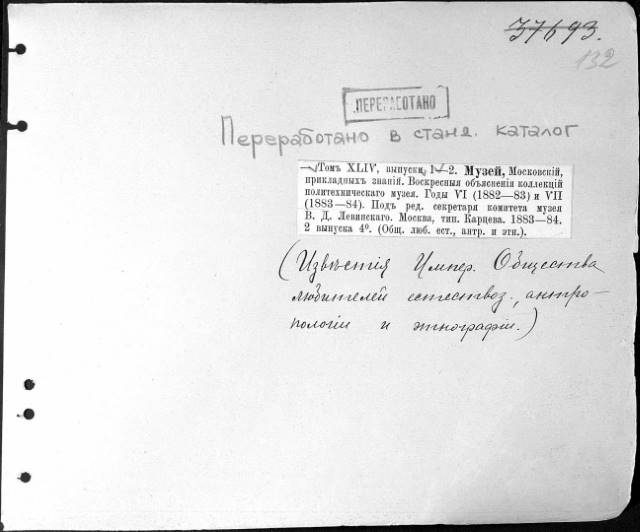 37693.
132
ПЕРЕРАБОТАНО
Переработано в станд. каталог
Томъ XLIV, выпуски 1—2. Музей, Московскій,
прикладныхъ знаній. Воскресныя объясненія коллекцій
политехническаго музея. Годы VI (1882—83) и VII
(1883—84). Подъ ред. секретаря комитета музея
В. Д. Левинскаго. Москва, тип. Карцева. 1883—84.
2 выпуска 4°. (Общ. люб. ест., антр. и этн.).
(Извѣстія Импер. Общества
любителей естествоз., антро-
пологіи и этнографіи.)